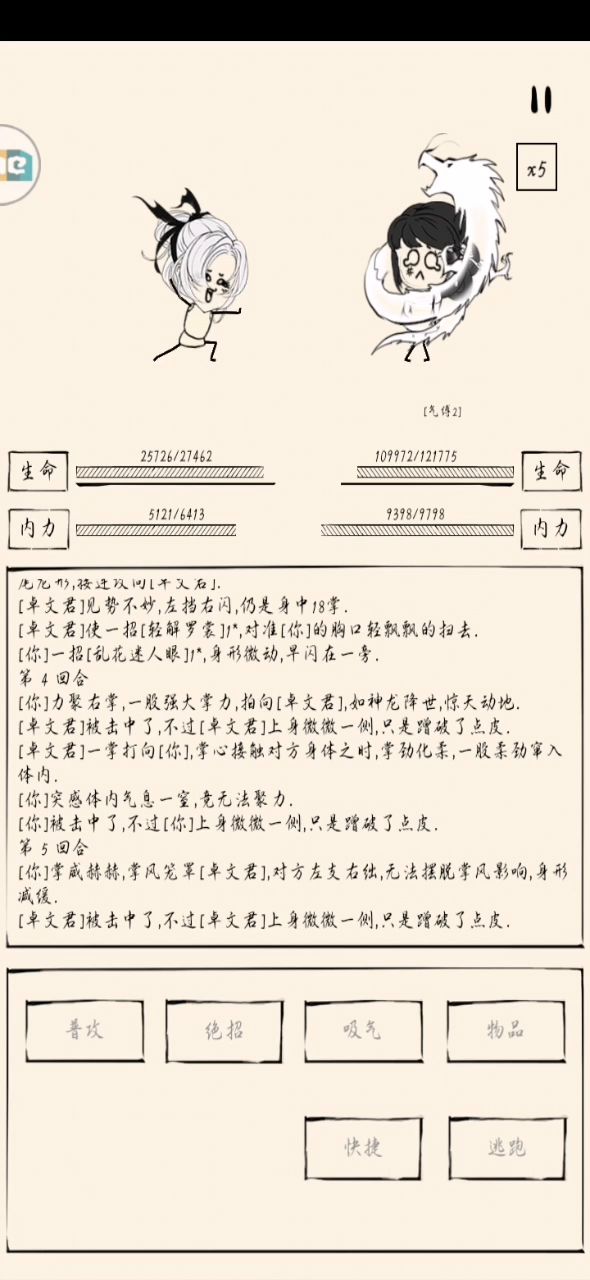 x5
[气缚2]
生命
25726/27462
109972/121775
生命
内力
5121/6413
9398/9798
内力
[卓文君]见势不妙,左挡右闪,仍是身中18掌.
[卓文君]使一招[轻解罗裳]1*,对准[你]的胸口轻飘飘的扫去.
[你]一招[乱花迷人眼]1*,身形微动,早闪在一旁.
第 4 回合
[你]力聚右掌,一股强大掌力,拍向[卓文君],如神龙降世,惊天动地.
[卓文君]被击中了,不过[卓文君]上身微微一侧,只是蹭破了点皮.
[卓文君]一掌打向[你],掌心接触对方身体之时,掌劲化柔,一股柔劲窜入
体内.
[你]突感体内气息一窒,竟无法聚力.
[你]被击中了,不过[你]上身微微一侧,只是蹭破了点皮.
第 5 回合
[你]掌威赫赫,掌风笼罩[卓文君],对方左支右绌,无法摆脱掌风影响,身形
减缓.
[卓文君]被击中了,不过[卓文君]上身微微一侧,只是蹭破了点皮.
普攻
绝招
吸气
物品
快捷
逃跑